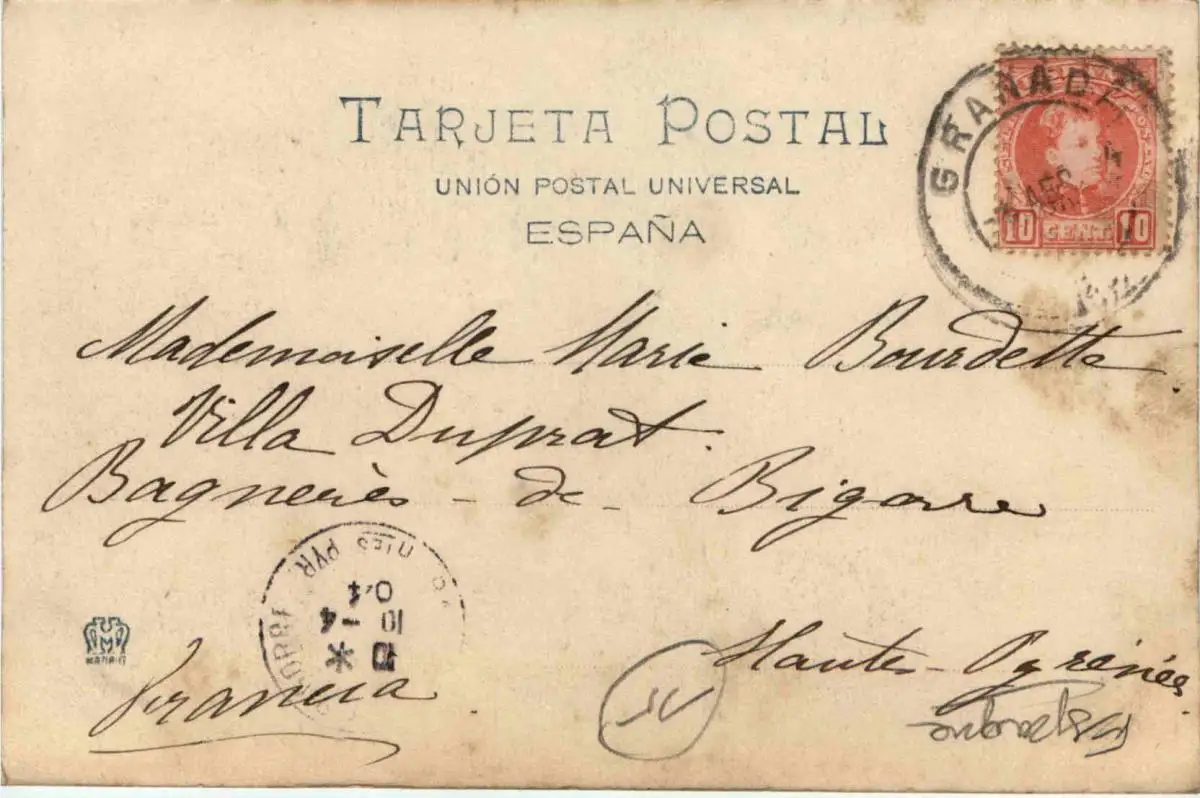 TARJETA POSTAL
UNIÓN POSTAL UNIVERSAL
ESPAÑA
GRANADA
10 CENT. 10
Mademoiselle Marie Bourdette
Villa Duprat.
Bagnerès-de-Bigorre
Hautes-Pyrénées
Francia
BIGORRE HTES PYR
10-4
04
Espagne